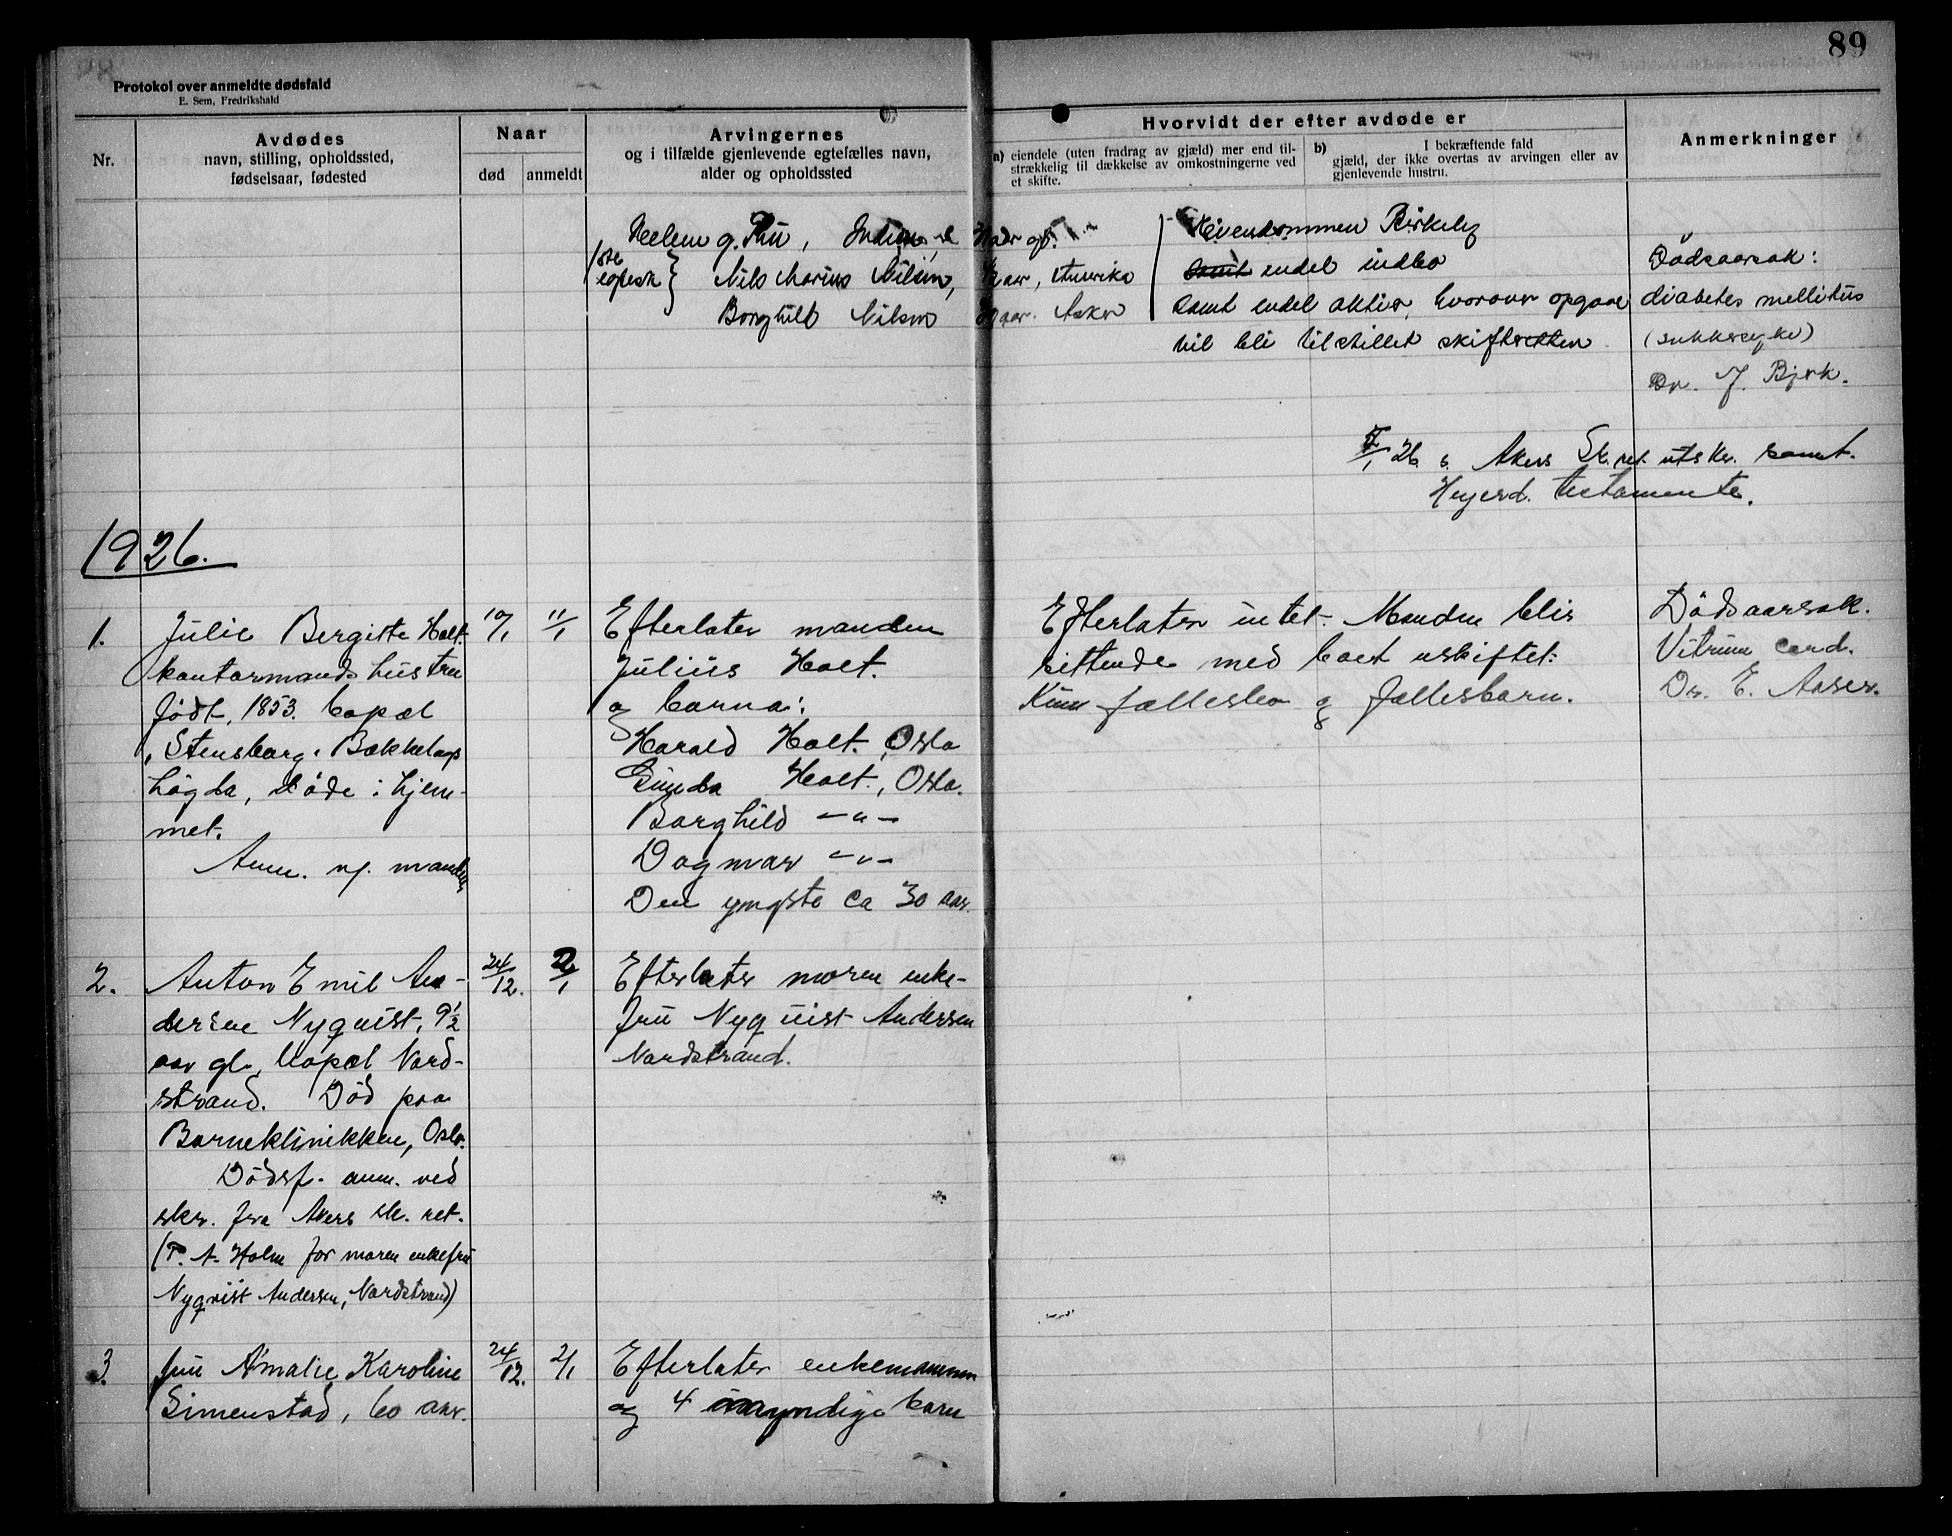 89
Protokol over anmeldte dødsfald
E. Sem, Fredrikshald
Nr.
Avdødes
navn, stilling, opholdssted,
fødselsaar, fødested
Naar
død
anmeldt
Arvingernes
og i tilfælde gjenlevende egtefælles navn,
alder og opholdssted
Hvorvidt der efter avdøde er
a) eiendele (uten fradrag av gjæld) mer end til-
strækkelig til dækkelse av omkostningerne ved
et skifte.
b) I bekræftende fald
gjæld, der ikke overtas av arvingen eller av
gjenlevende hustru.
Anmerkninger
Helene g.
Nils Marius Nilsen, aar, Amerika
Borghild Nilsen aar. Asker
Eiendommen Birkely
samt endel indbo
samt endel aktier, hvorover opgave
vil bli tilstillet skifteretten
Dødsaarsak:
diabetes mellitus
(sukkersyke)
Dr. J. Bjerk.
/1 26 s. Akers Sk.ret utskr. samt
testamente.
1926.
1.
Julie Bergitte Holt
kontormands hustru
født. 1853. bopæl
"Stensborg" Bækkelags
høgda, døde i hjem-
met.
Anm. af manden
10/1
11/1
Efterlater manden
Julius Holt.
og barna:
Harald Holt, Oslo
Gunda Holt, Oslo.
Borghild -"-
Dagmar -"-
Den yngste ca 30 aar.
Efterlater intet. Manden blir
sittende med boet uskiftet.
Kun fællesbo og fællesbarn.
Dødsaarsak.
Vitium cord.
Dr. E. Aaser.
2.
Anton Emil An-
dersen Nyquist, 9½
aar gl., bopæl Nord-
strand. Død paa
Barneklinikken, Oslo.
Dødsf. anm. ved
skr. fra Akers sk. ret.
(T. A. Holm for moren enkefru
Nyqvist Andersen, Nordstrand)
24/12.
2/1
Efterlater moren enke-
fru Nyquist Andersen
Nordstrand.
3.
fru Amalie Karoline
Simenstad, 60 aar.
24/12.
2/1
Efterlater enkemannen
og 4 umyndige barn